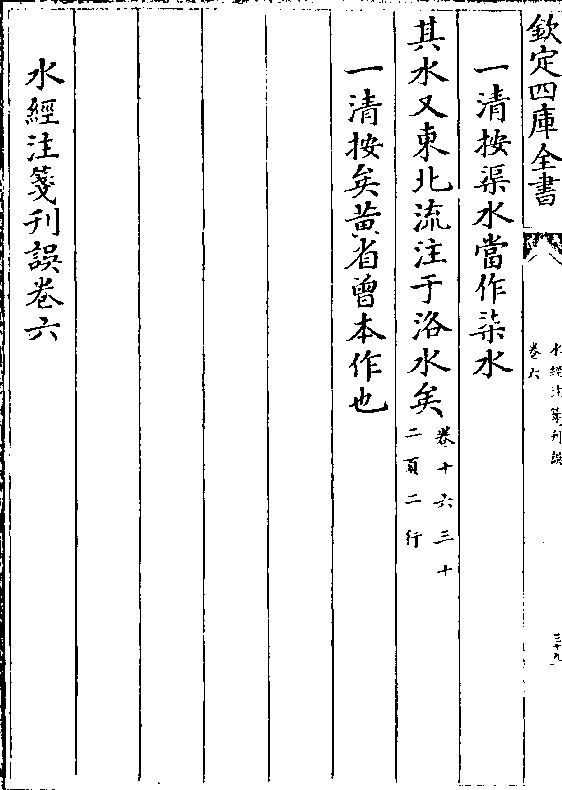 欽定四庫全書
水經注箋刋誤
卷六
三十九
一清按渠水當作柒水
其水又東北流注于洛水矣
卷十六三十
二頁二行
一清按矣黄省曾本作也
水經注箋刋誤卷六